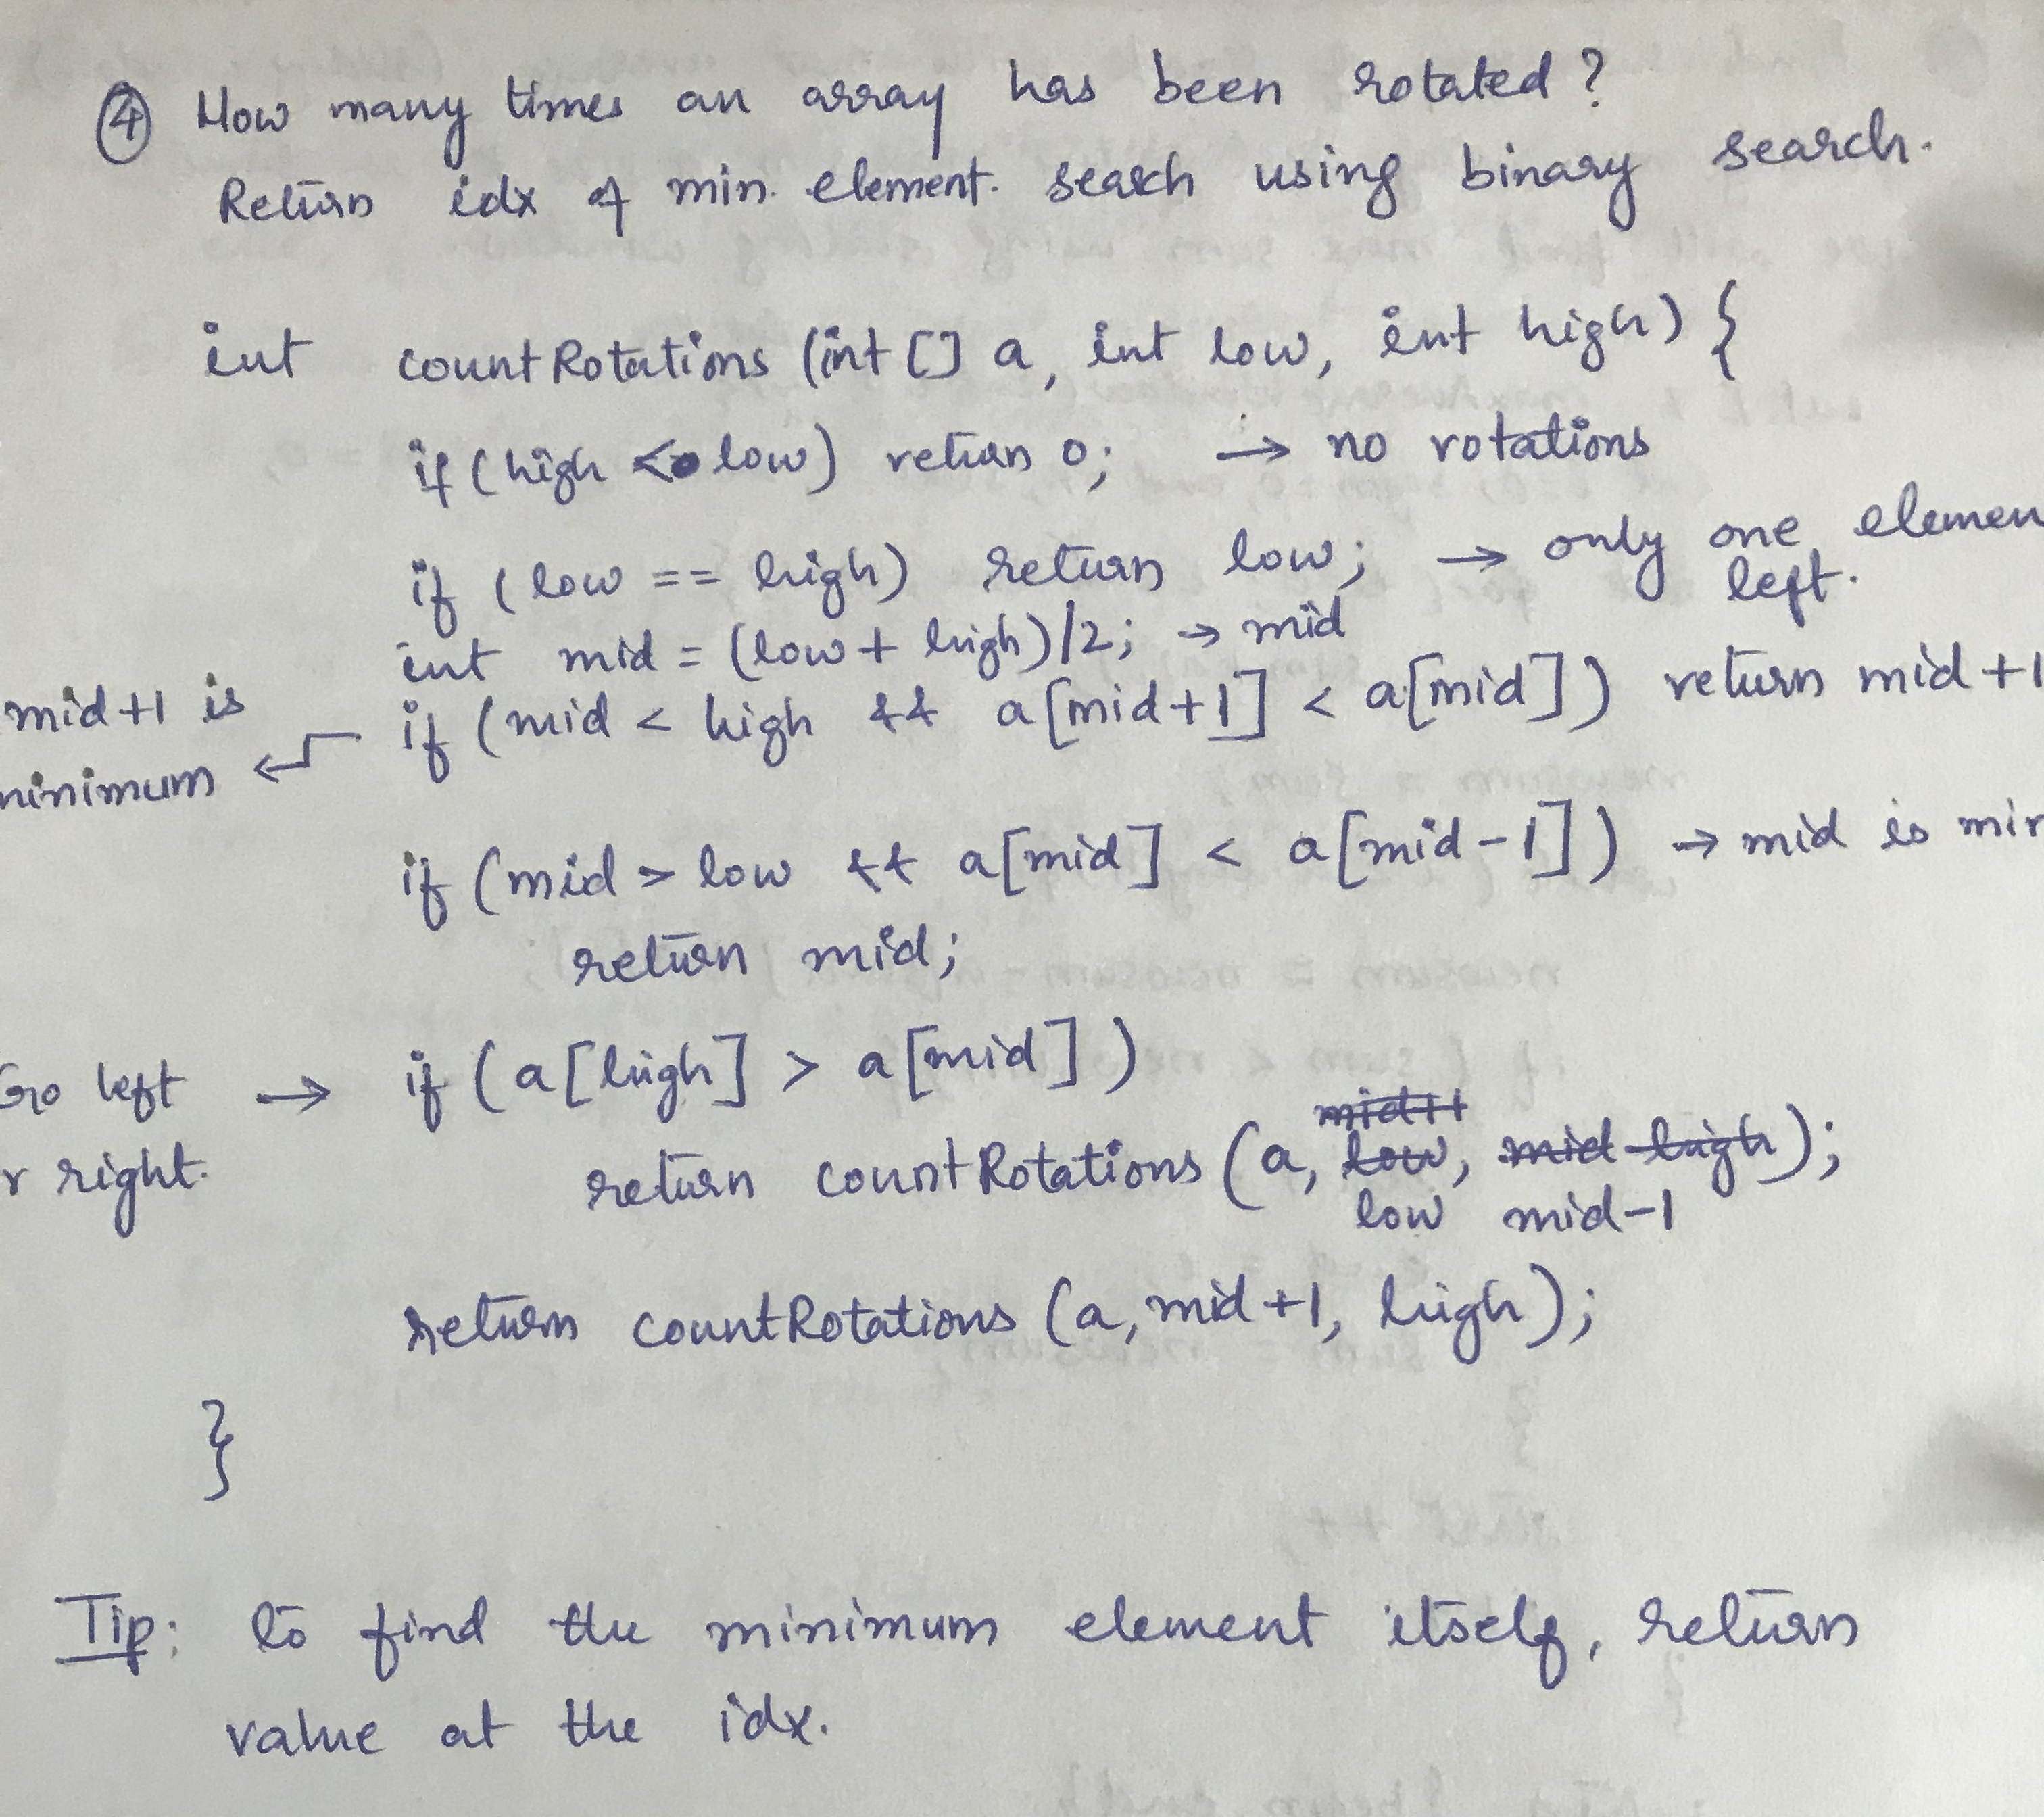 ④ How many times an array has been rotated?
Return idx of min. element. search using binary search.
int countRotations (int [] a, int low, int high) {
if (high < low) return 0; → no rotations
if (low == high) return low; → only one elemen
left.
int mid = (low + high)/2; → mid
mid+1 is
minimum
if (mid < high && a[mid+1] < a[mid]) return mid+1
if (mid > low && a[mid] < a[mid-1]) → mid is min
return mid;
Go left
r right.
→ if (a[high] > a[mid])
mid+1
return countRotations (a, low, mid high);
low mid-1
return countRotations (a, mid+1, high);
}
Tip: to find the minimum element itself, return
value at the idx.